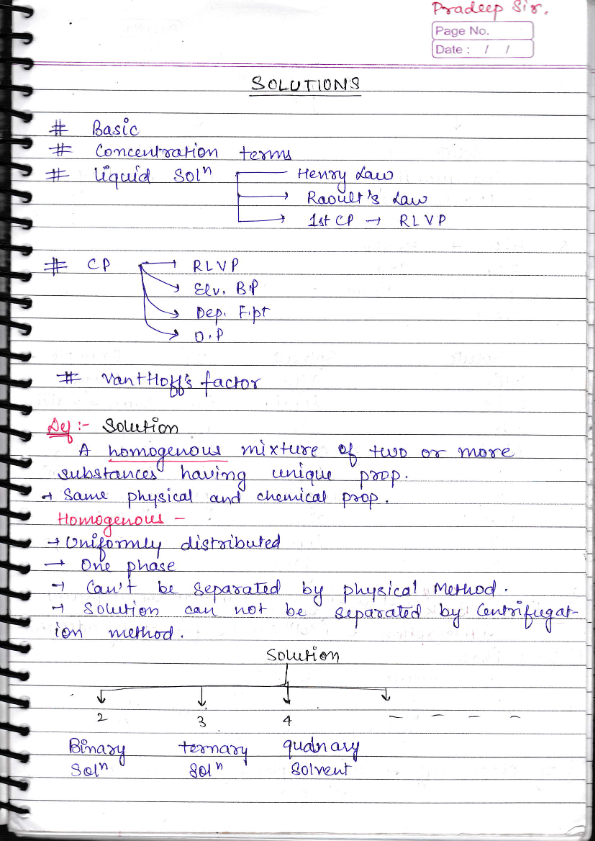 Pradeep Sir.
Page No.
Date : / /
SOLUTIONS
# Basic
# Concentration terms
# liquid Solⁿ Henry Law
→ Raoult's Law
→ 1st CP → RLVP
# CP → RLVP
→ Elv. B.P
→ Dep. F.pt
→ O.P
# Van't Hoff's factor
Def :- Solution
A homogenous mixture of two or more
substances having unique prop.
→ Same physical and chemical prop.
Homogenous -
→ Uniformly distributed
→ One phase
→ Can't be separated by physical Method.
→ Solution can not be separated by Centrifugat-
ion method.
Solution
2 3 4 - - - -
Binary ternary qudnary
Solⁿ Solⁿ Solvent